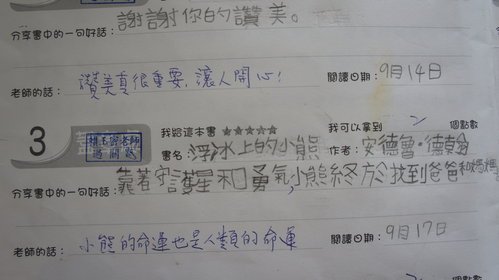 分享書中的一句好話：謝謝你的讚美。
老師的話：讚美真很重要，讓人開心！ 閱讀日期：9月14日
3 我給這本書★★★★★ 我可以拿到 2 個點數
書名：浮冰上的小熊 作者：安德魯·德翰
分享書中的一句好話：靠著守護星和勇氣，小熊終於找到爸爸和媽媽
老師的話：小熊的命運也是人類的命運 閱讀日期：9月17日